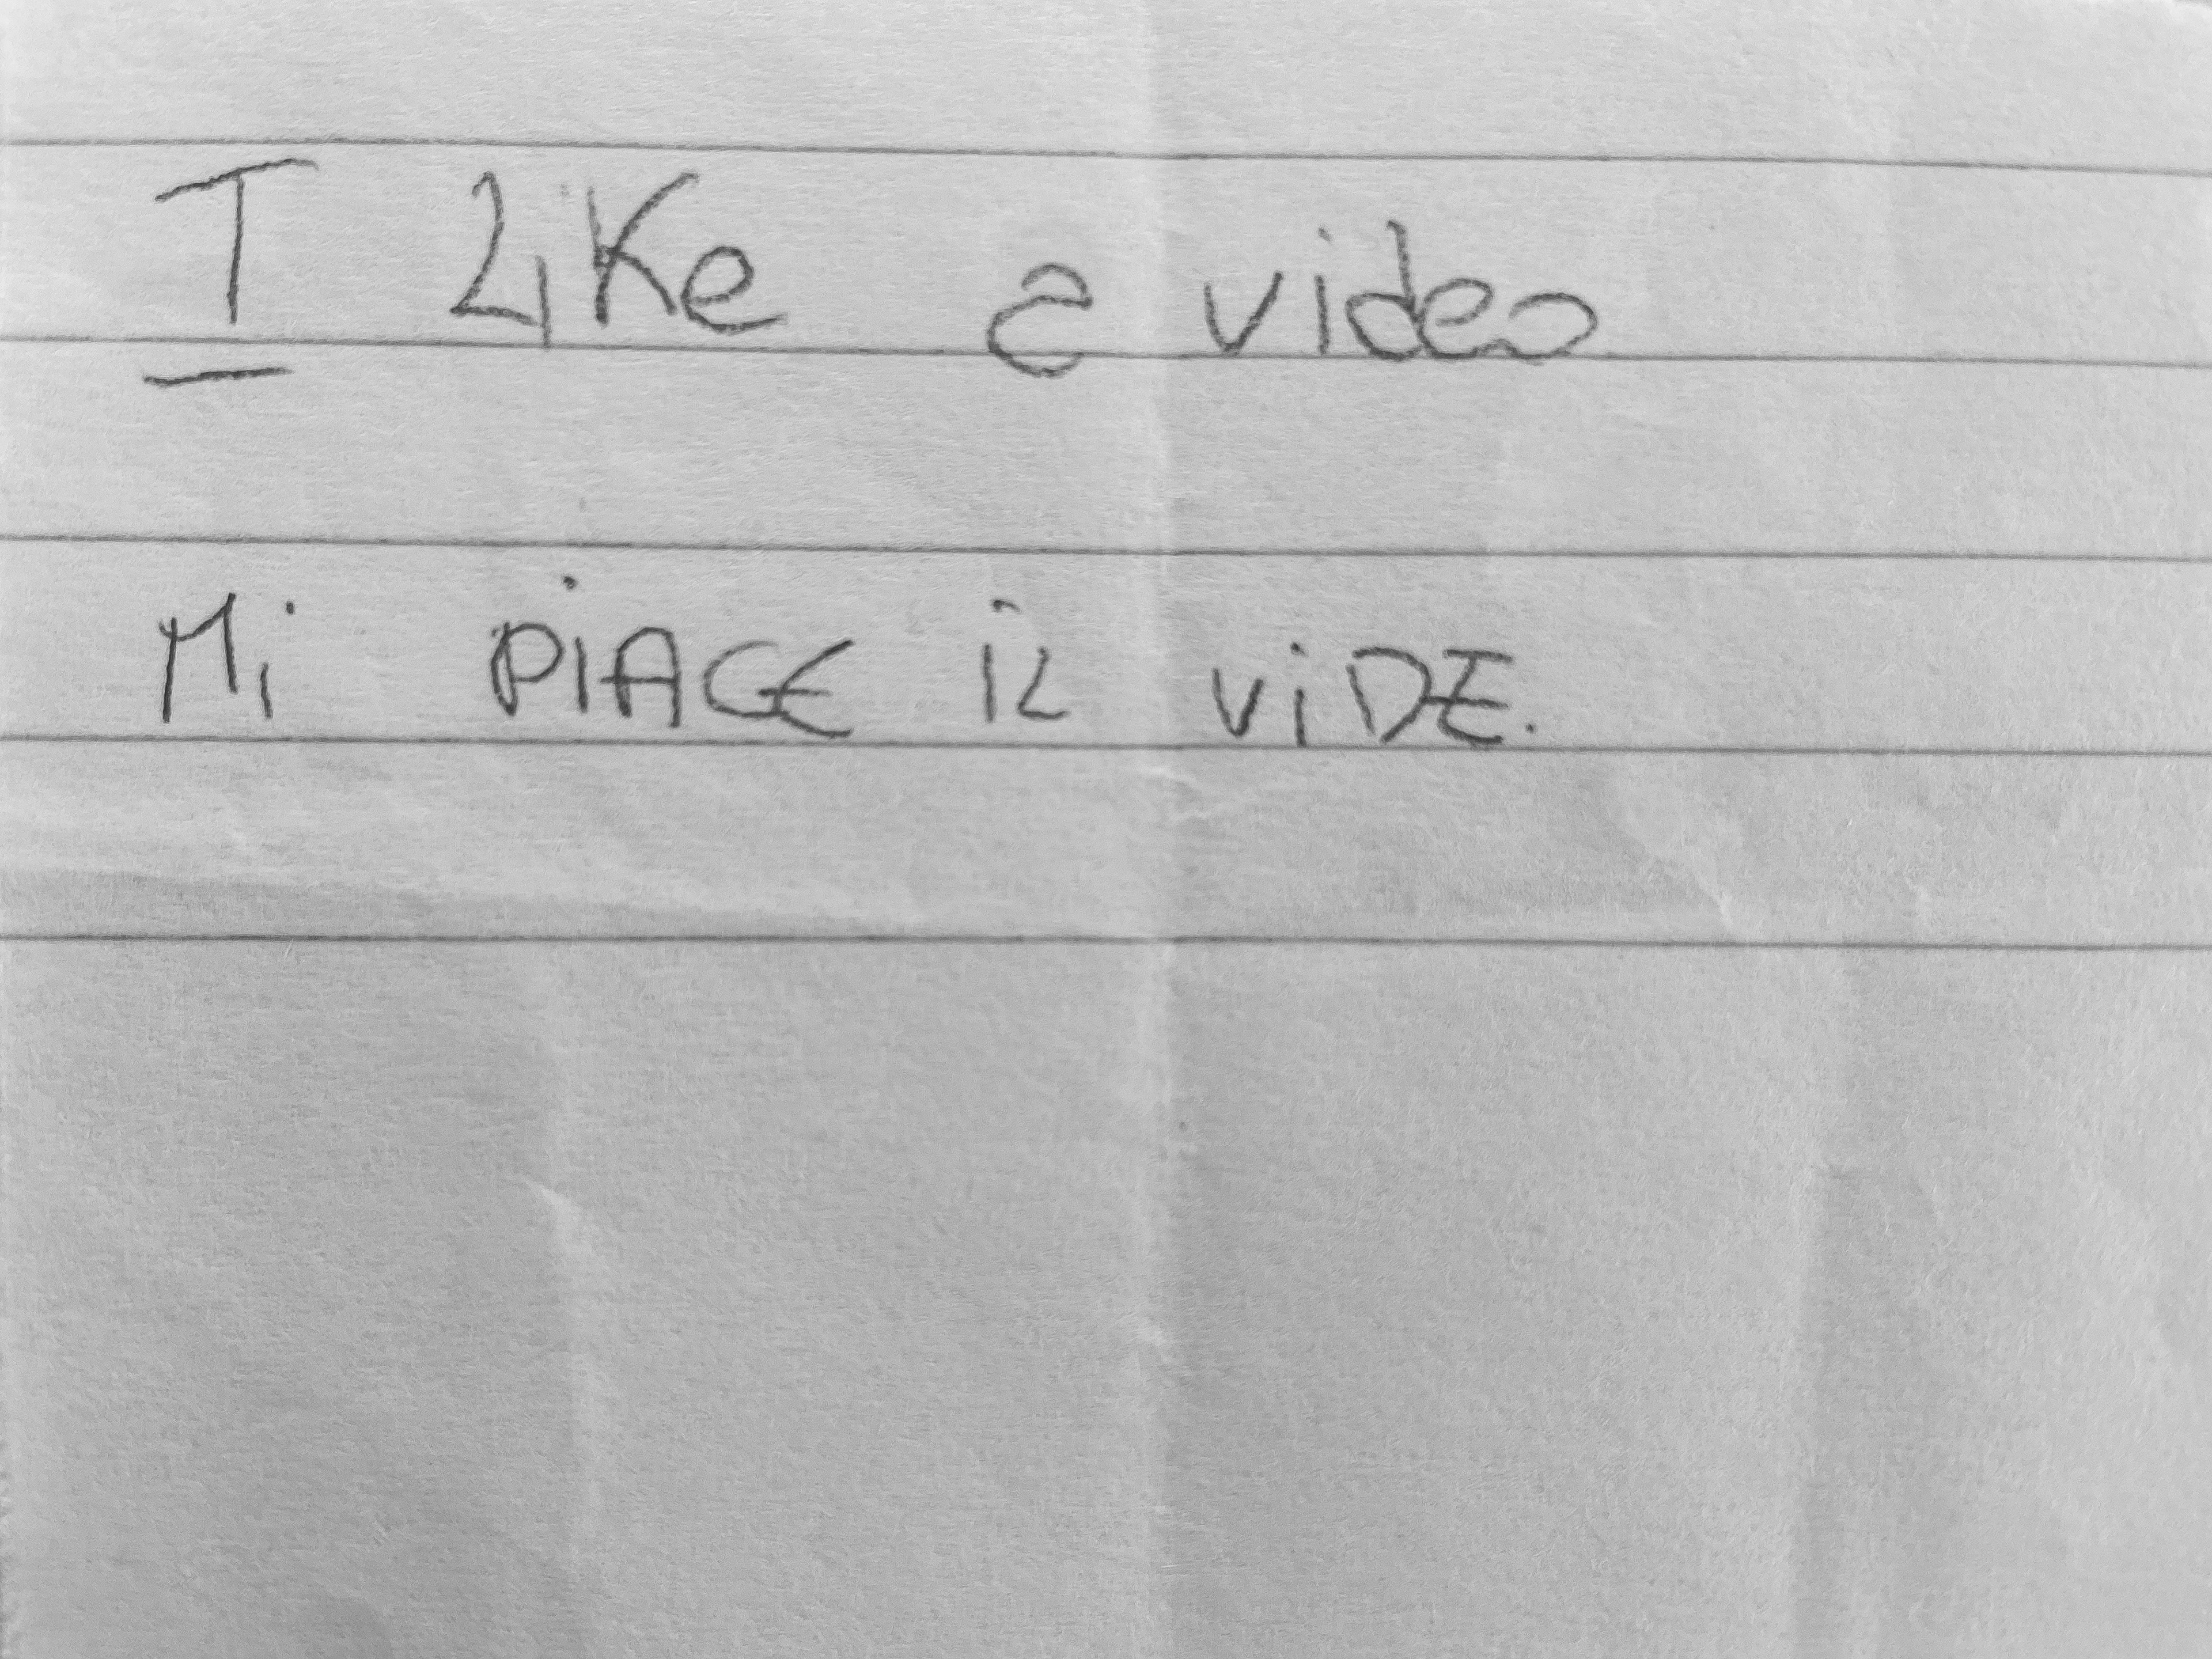 I Like a video
Mi PiACE iL ViDE.